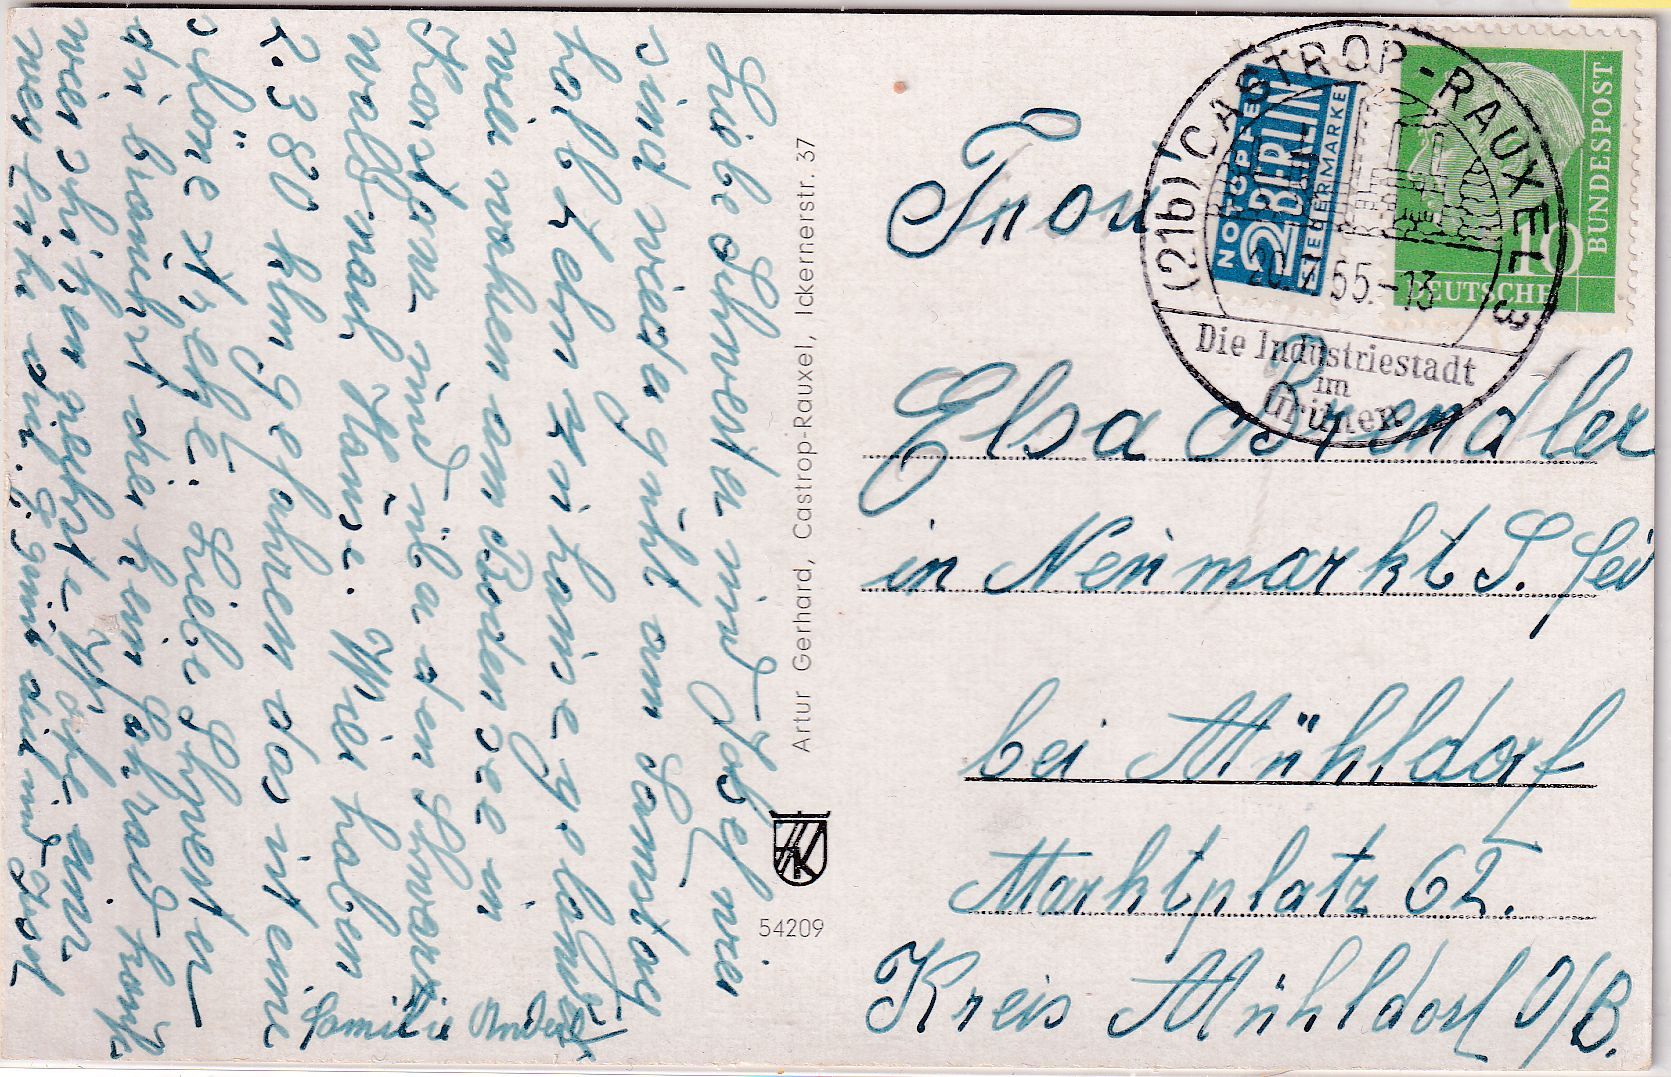 Liebe Schwester und Josef wir
sind wieder gut am Samstag
halb zehn zu hause gelandet
wir wahren am Bodensee in
Konstanz und über den Schwarz
wald nach Hause. Wir haben
2.380 klm gefahren das ist eine
schöne Strecke. Liebe Schwester
du brauchst die kein Fahrrad kaufen
wir schiken nechste Woche ein
weg. Liebe und Josef
Familie Andert
Artur Gerhard, Castrop-Rauxel, Ickernerstr. 37
54209
NOTOPFER
2 BERLIN
STEUERMARKE
10
DEUTSCHE
BUNDESPOST
(21b) CASTROP-RAUXEL 3
20. 55.-13
Die Industriestadt
im
Grünen
Frau
Elsa Brendler
in Neumarkt S. Veit
bei Mühldorf
Marktplatz 62.
Kreis Mühldorf O/B.